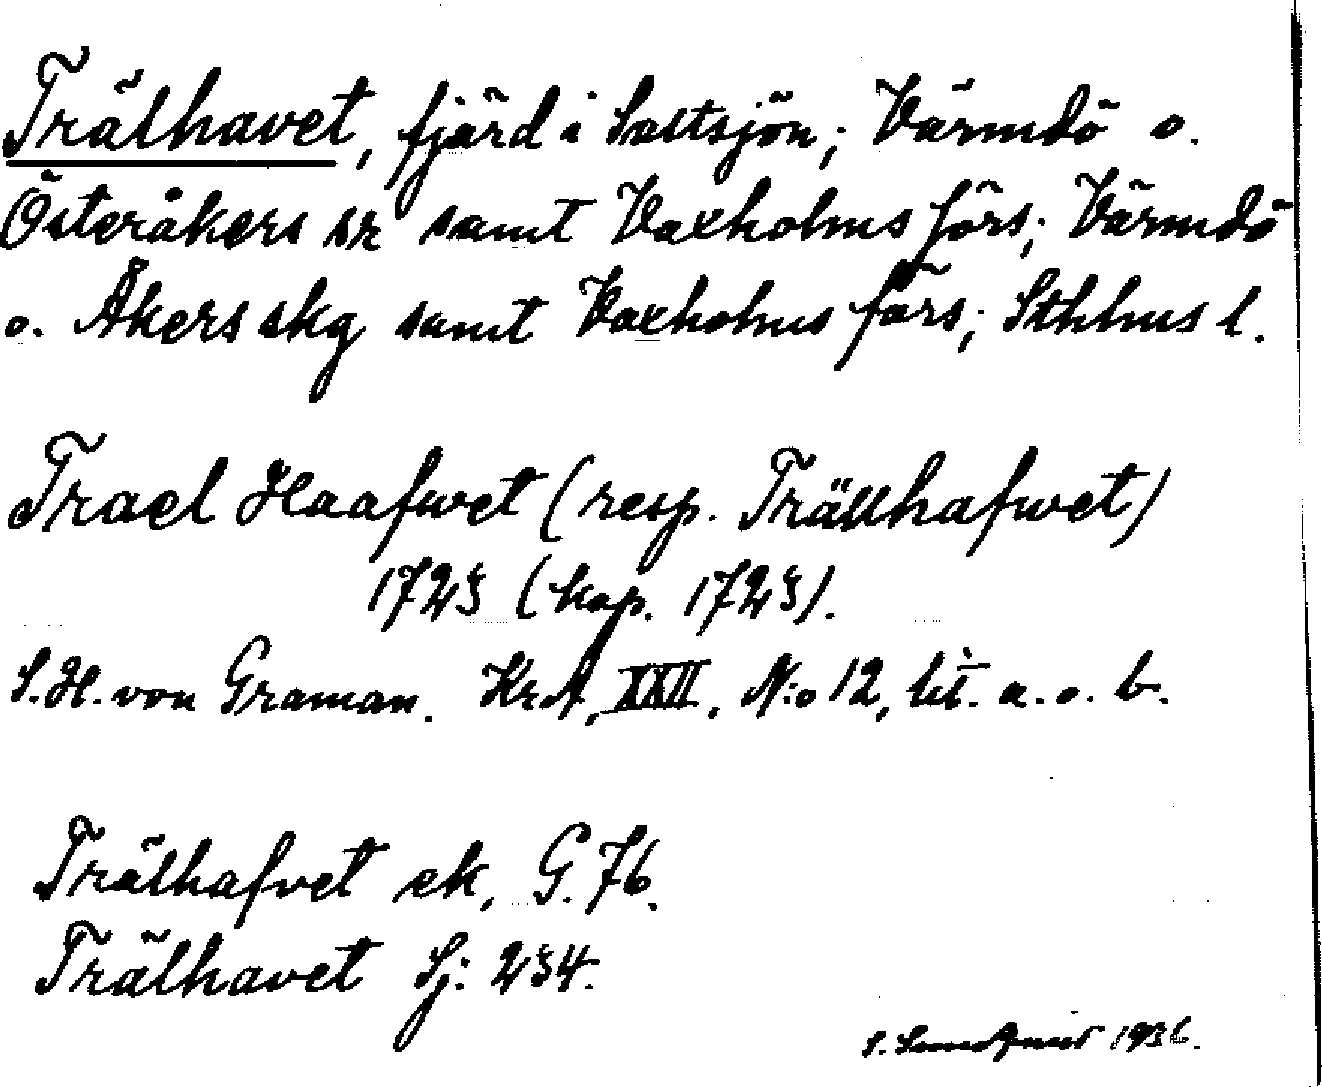 Trälhavet, fjärd i Saltsjön; Värmdö o.
Österåkers sr samt Vaxholms förs; Värmdö
o. Åkers skg samt Vaxholms förs; Sthlms l.
Trael Haafwet (resp. Trällhafwet)
1725 (kop. 1725).
S.H. von Graman. KrA, XXII, N:o 12, lit. a. o. b.
Trälhafvet ek, G. 76.
Trälhavet Sj: 234.
S. 1936.